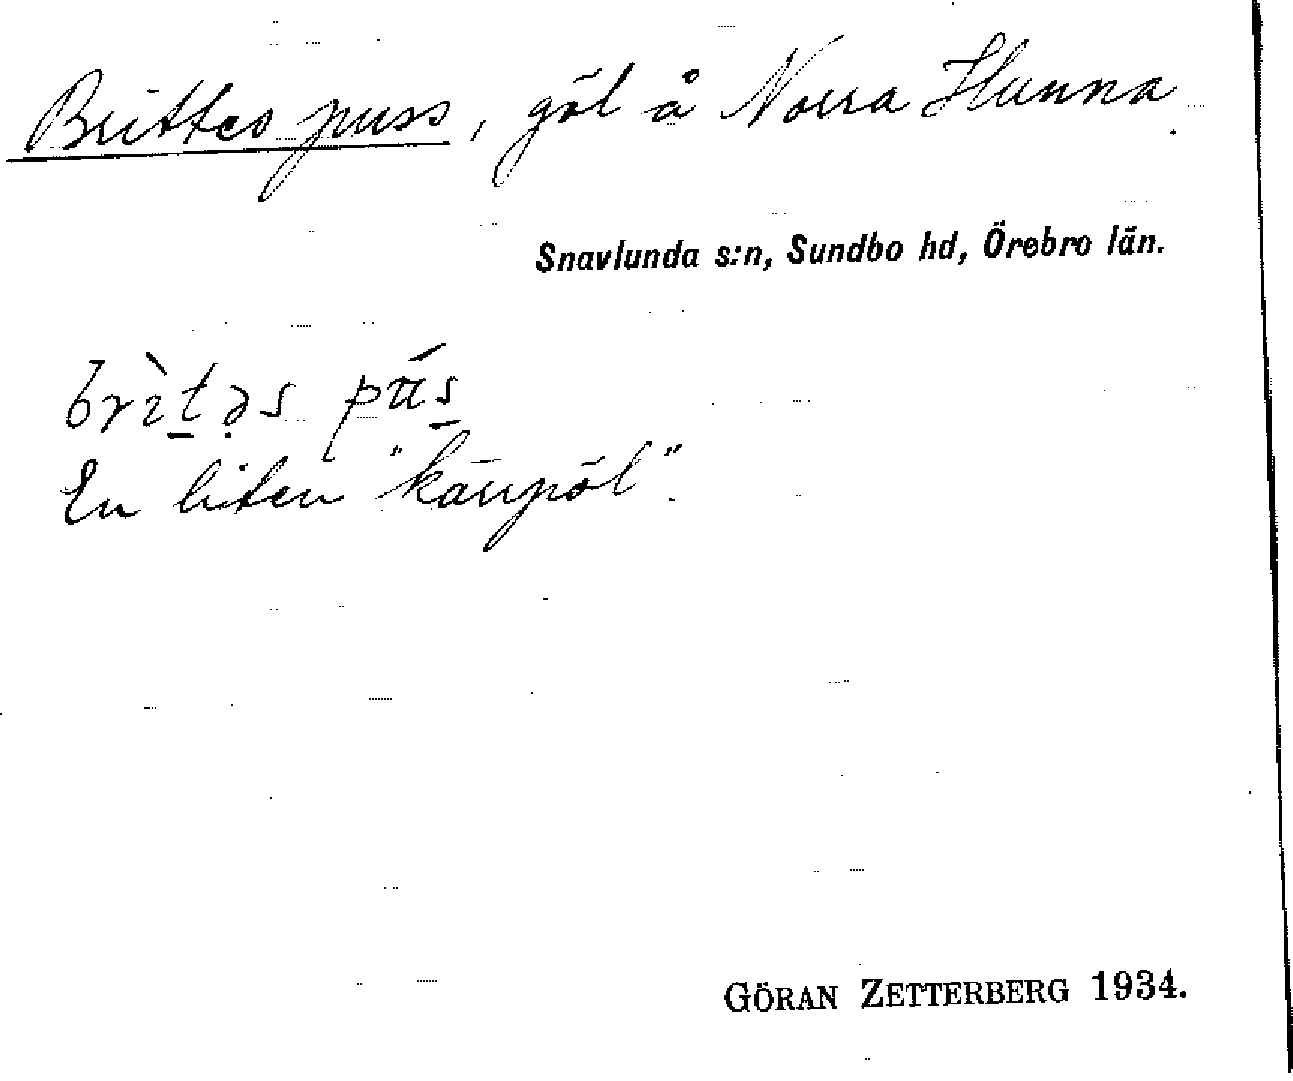 Brittes puss, göl å Norra Hunna.
Snavlunda s:n, Sundbo hd, Örebro län.
brìt̠ə̣s pás̠
En liten "kärrpöl".
GÖRAN ZETTERBERG 1934.